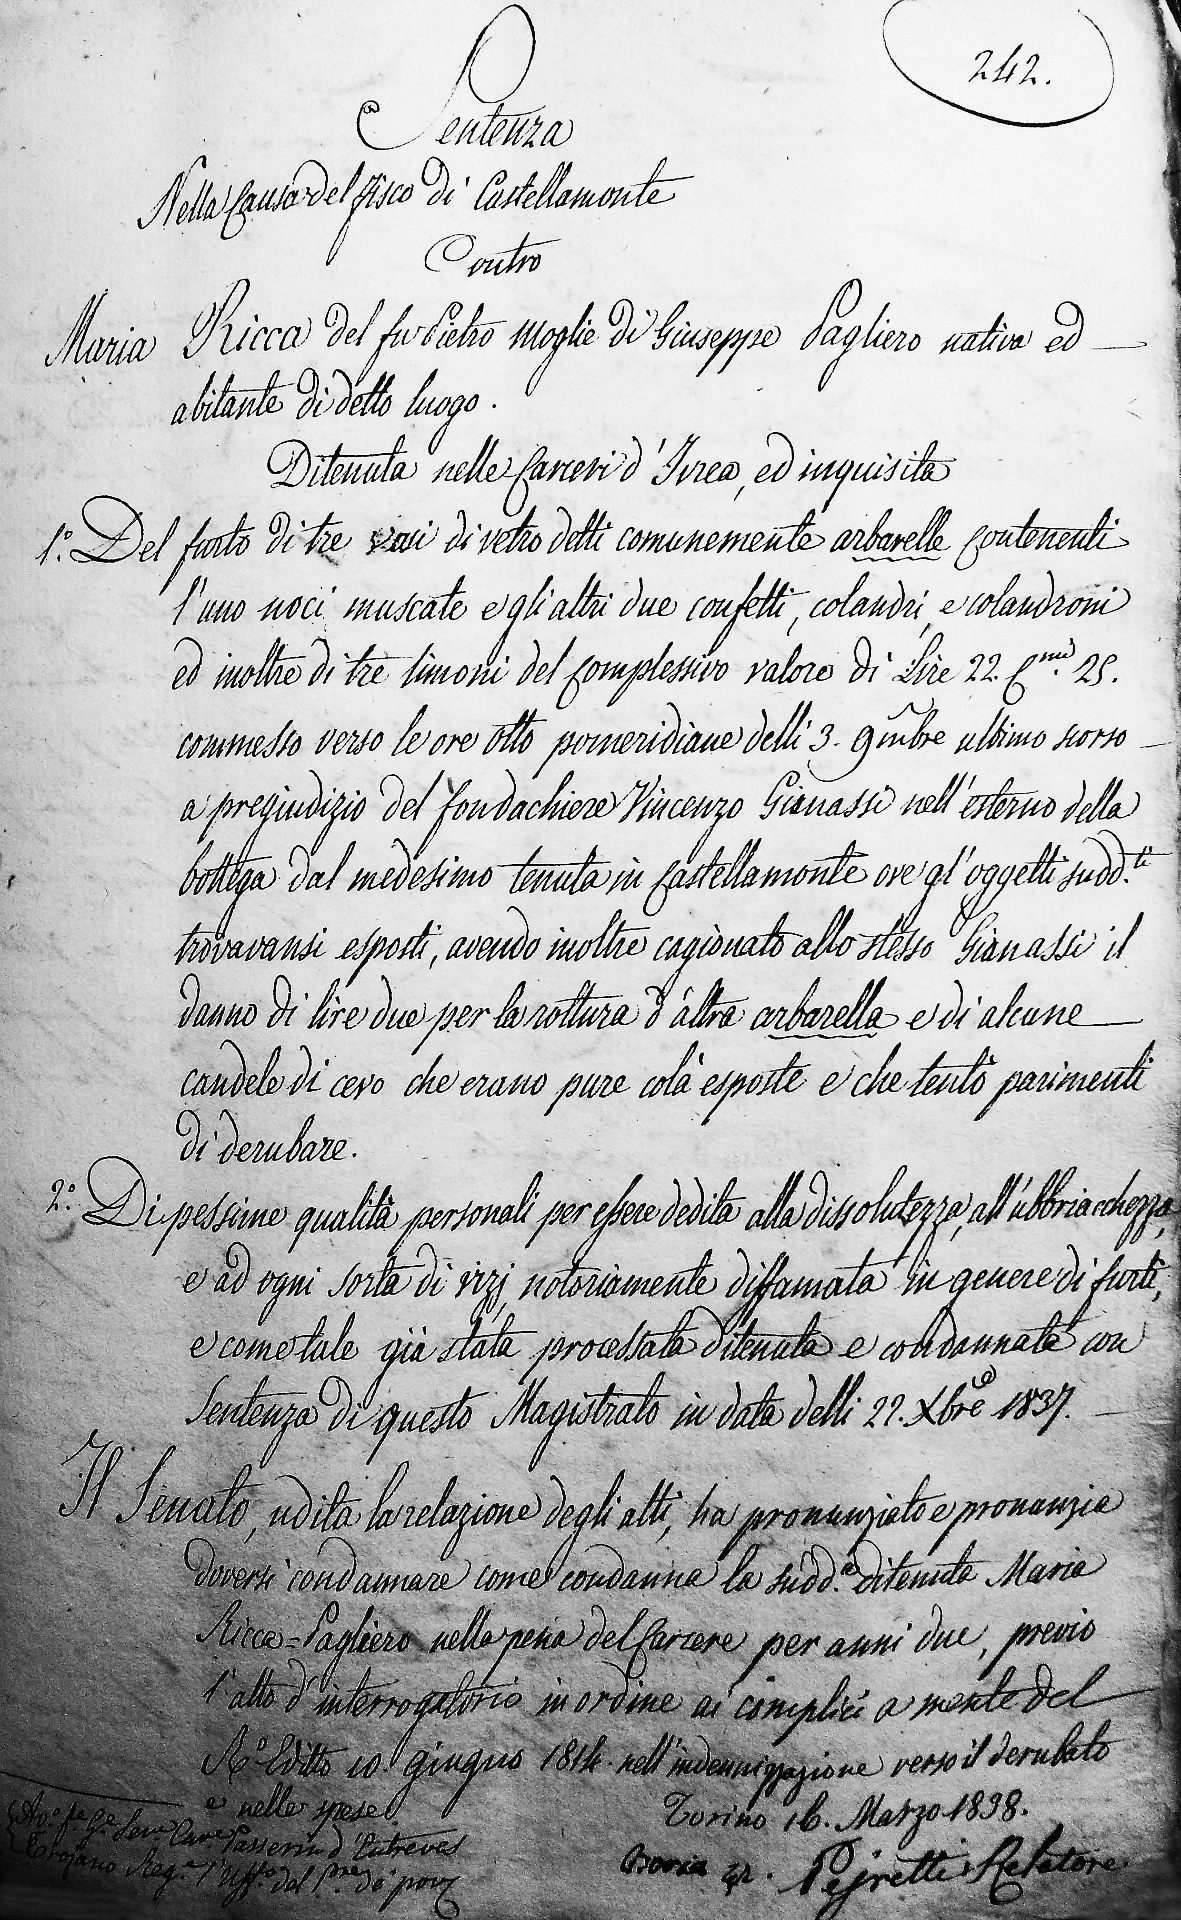 242.
Sentenza
Nella Causa del fisco di Castellamonte
Contro
Maria Ricca del fu Pietro moglie di Giuseppe Pagliero nativa ed
abitante di detto luogo.
Ditenuta nelle Carceri d'Ivrea, ed inquisita
1.° Del furto di tre vasi di vetro detti comunemente arbarelle contenenti
l'uno noci muscate e gli altri due confetti, colandri, e colandroni
ed inoltre di tre limoni del complessivo valore di Lire 22. C.mi 25.
commesso verso le ore otto pomeridiane delli 3. 9mbre ultimo scorso
a pregiudizio del fondachiere Vincenzo Gianassi nell'esterno della
bottega dal medesimo tenuta in Castellamonte ove gl'oggetti sudd.ti
trovavansi esposti, avendo inoltre cagionato allo stesso Gianassi il
danno di lire due per la rottura d'altra arbarella e di alcune
candele di cevo che erano pure colà esposte e che tentò parimenti
di derubare.
2.° Di pessime qualità personali per essere dedita alla dissolutezza, all'ubbriacchezza,
e ad ogni sorta di vizj, notoriamente diffamata in genere di furti,
e come tale già stata processata ditenuta e condannata con
Sentenza di questo Magistrato in data delli 22. Xbre 1837.
Il Senato, udita la relazione degli atti, ha pronunziato e pronunzia
doversi condannare come condanna la sudd.a ditenuta Maria
Ricca=Pagliero nella pena del Carcere per anni due, previo
l'atto d'interrogatorio in ordine ai complici a mente del
R.° Editto 10. giugno 1814. nell'indennizzazione verso il derubato
e nelle spese.
Torino 16. Marzo 1838.
Passerin d'Entreves
Trojano Reg.e l'Uff.° dal
Peyretti Relatore